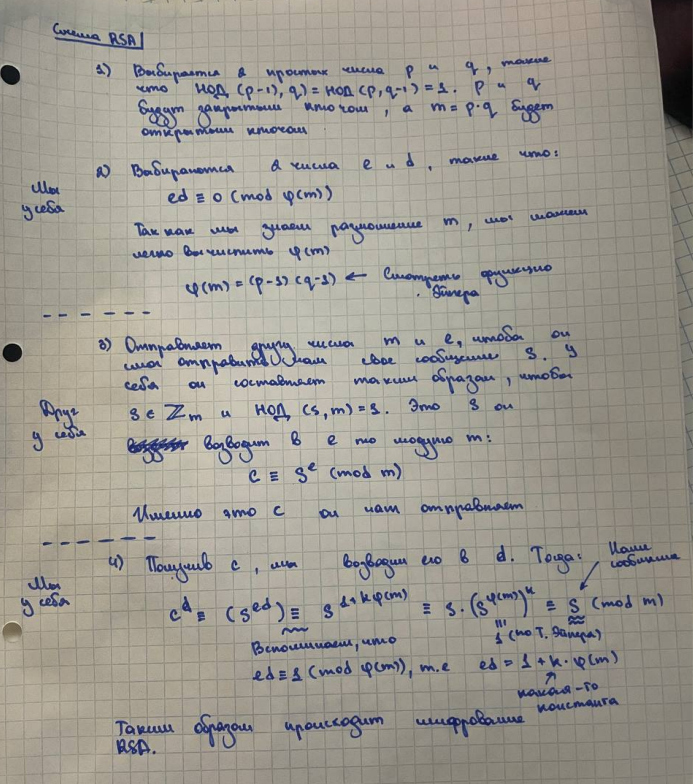 Схема RSA
1) Выбирается 2 простых числа p и q, такие
что НОД (p-1), q) = НОД (p, q-1) = 1. p и q
будут закрытым ключом, а m = p·q будет
открытым ключом
2) Выбираются 2 числа e и d, такие что:
Мы у себя
ed ≡ 0 (mod φ(m))
Так как мы знаем разложение m, мы можем
легко вычислить φ(m)
φ(m) = (p-1)(q-1) ← Смотреть функцию
Эйлера
3) Отправляет другу числа m и e, чтобы он
смог отправить нам свое сообщение S. У
себя он составляет таким образом, чтобы
Друг у себя
S ∈ ℤm и НОД (s, m) = 1. Это S он
возводит в e по модулю m:
c ≡ S^e (mod m)
Именно это c он нам отправляет
4) Получив c, мы возводим его в d. Тогда:
Наше сообщение
Мы у себя
c^d ≡ (s^ed) ≡ s^1+kφ(m) ≡ s·(s^φ(m))^k ≡ S (mod m)
1 (по Т. Эйлера)
Вспоминаем, что
ed ≡ 1 (mod φ(m)), т.е ed = 1 + k·φ(m)
какая-то константа
Таким образом происходит шифрование
RSA.